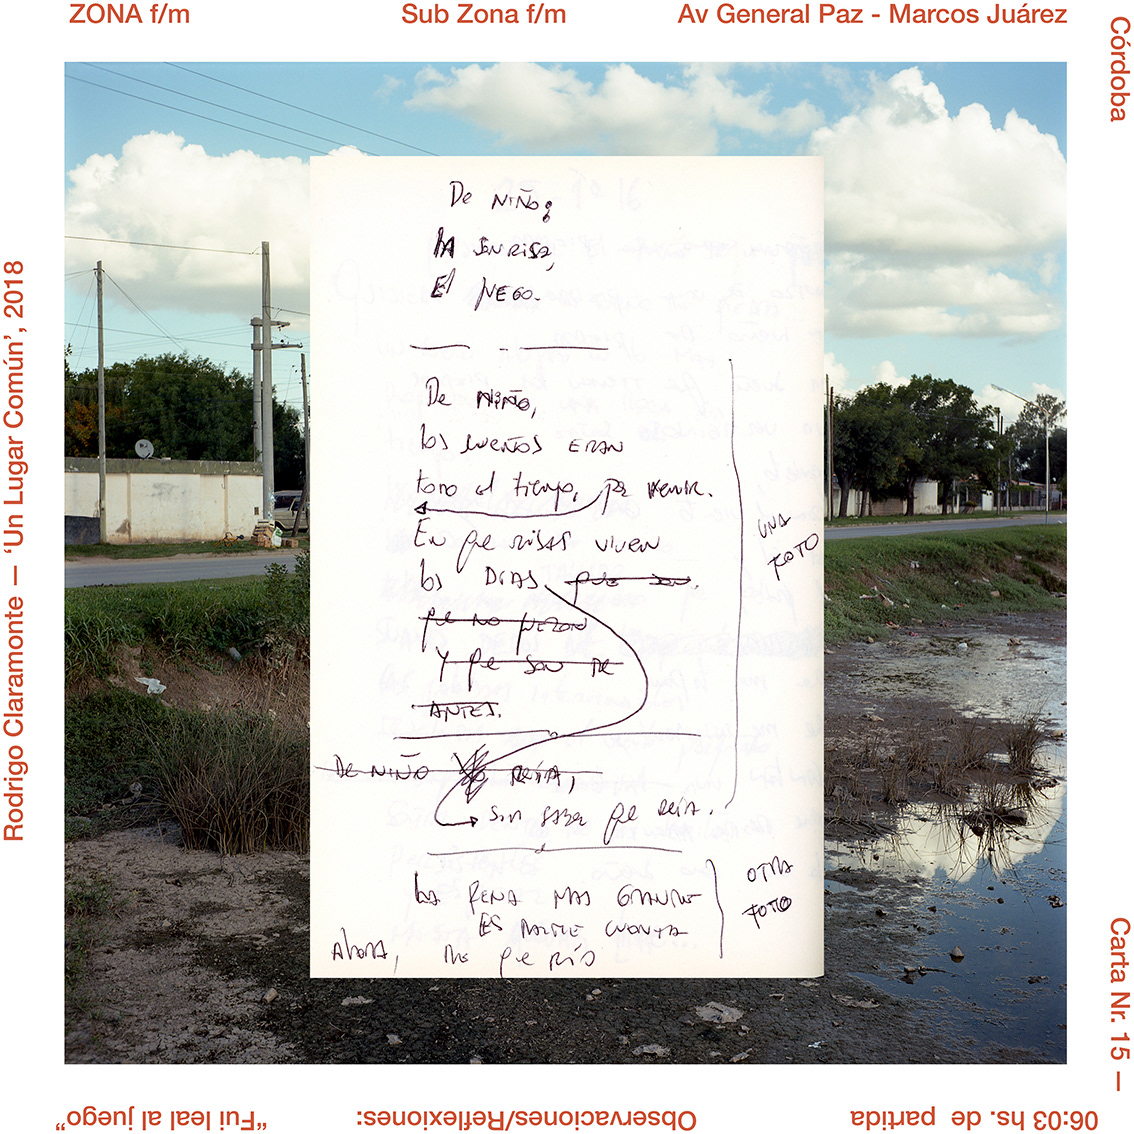 ZONA f/m
Sub Zona f/m
Av General Paz - Marcos Juárez
Córdoba
Carta Nr. 15 —
06:03 hs. de partida
Observaciones/Reflexiones:
“Fui leal al juego”
Rodrigo Claramonte — ‘Un Lugar Común’, 2018
De NIÑO:
LA SONRISA,
El JUEGO.
De NIÑO,
los SUEÑOS ERAN
TODO el tiempo, por venir.
En que RISAS VIVEN
los DÍAS. que son.
que no fueron
Y que son DE
ANTES.
De NIÑO REÍA,
sin saber que REÍA.
UNA
FOTO
LA PENA MAS GRANDE
ES DARME CUENTA
Ahora, que RÍO
OTRA
FOTO